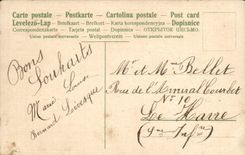 Carte postale - Postkarte - Cartolina postale - Post card
Levelező-Lap - Briefkaart - Brefkort - Karta korespondencyjna - Dopisnice
Correspondenzkarte - Tarjeta postal - Dopisnica - ОТКРЫТОЕ ПИСЬМО.
Union postale universelle - Weltpostverein - Unione postale universale
Bons
Souhaits
Marie Louise
Bernard Levesque
Mr et Mme Bellet
Rue de l'Amiral Courbet
No 10
Le Havre
(Sne Infre)